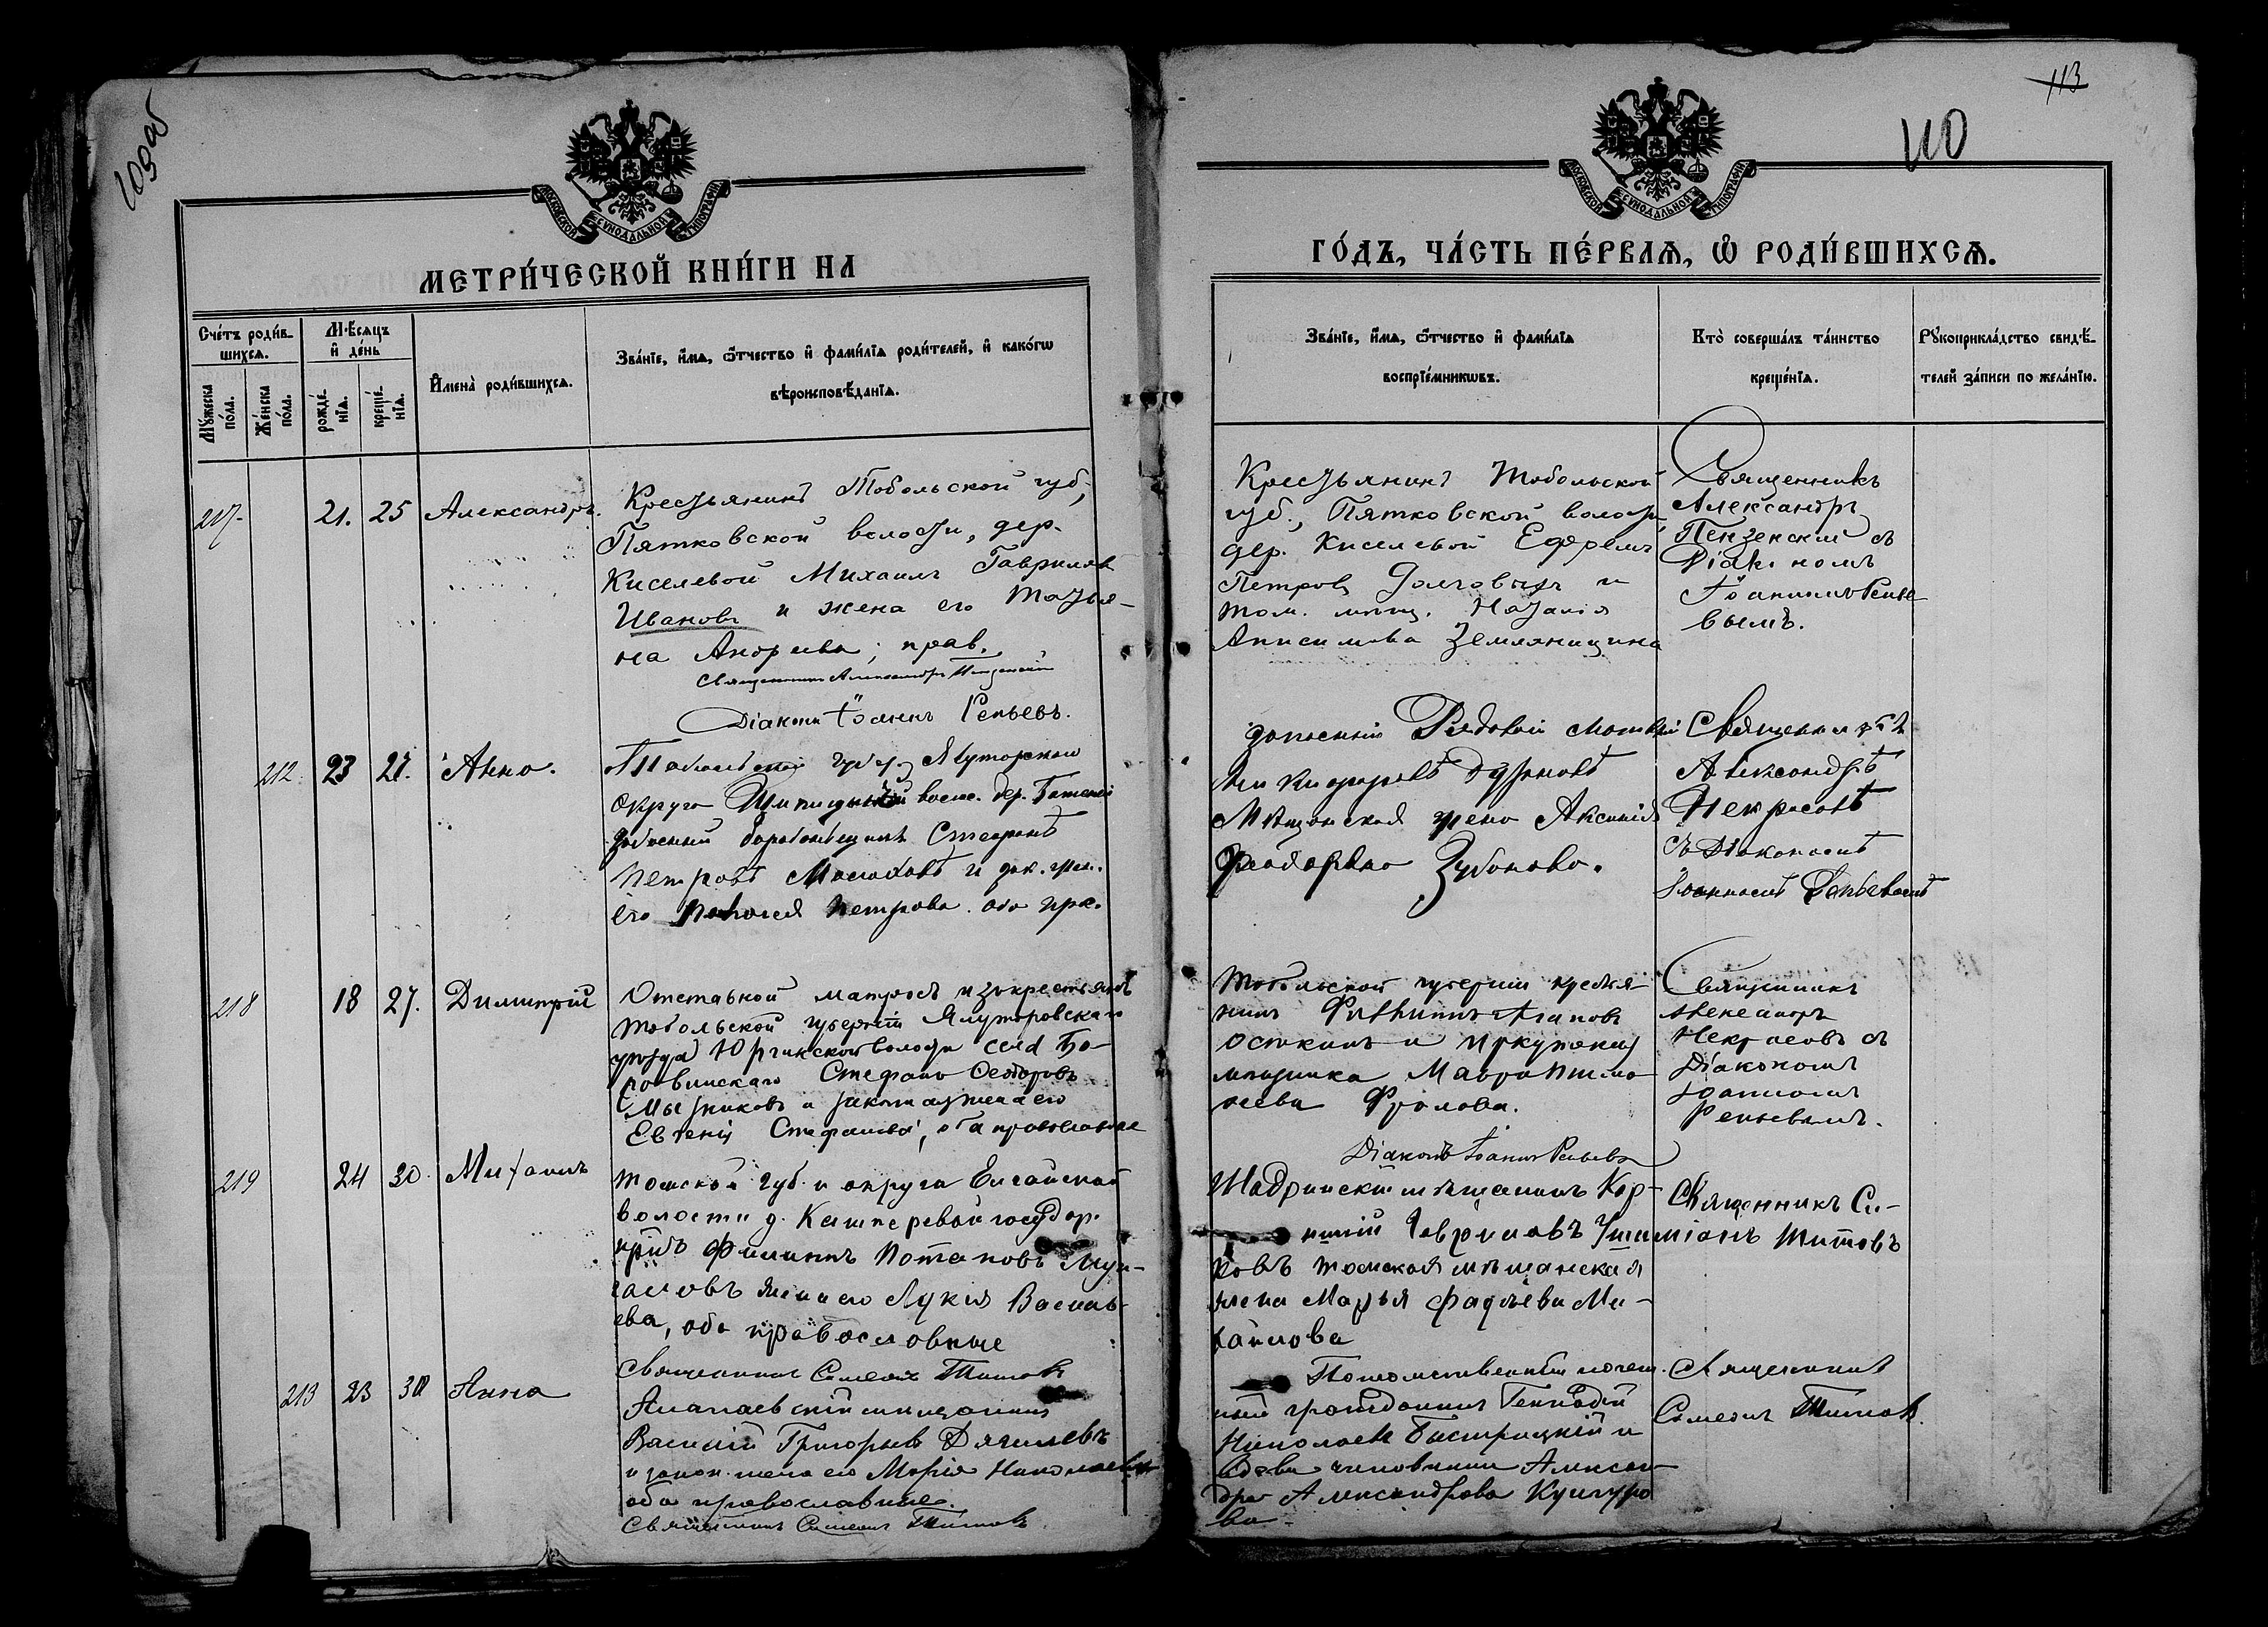 109 об
113
110
МОСКОВСКОЙ СѴНОДАЛЬНОЙ ТИПОГРАФІИ
МЕТРИ́ЧЕСКОЙ КНИ́ГИ НА
Сче́тъ роди́в-
шихсѧ.
Мѣ́сѧцъ
и҆ де́нь
Мꙋ́жеска
по́ла.
Же́нска
по́ла.
рожде́-
нїѧ.
креще́-
нїѧ.
И҆мена̀ роди́вшихсѧ.
Зва́нїе, и҆́мѧ, ѻ҆́тчество и҆ фами́лїѧ роди́телей, и҆ како́гѡ
вѣроисповѣ́данїѧ.
217.
21.
25
Александръ.
Крестьянинъ Тобольской губ.,
Пятковской волости, дер.
Киселевой Михаилъ Гаврилов
Ивановъ и жена его Татья-
на Андреева; прав.
Священникъ Александръ Пензенскій
Діаконъ Іоаннъ Репьевъ.
212
23
27.
Анна.
Тобольской губер.
округа волос. дер.
Стефанъ
Петровъ и зак. жен.
его Петрова. оба пра.
218
18
27.
Димитрій
Отставной матросъ изъ крестьянъ
Тобольской губерніи Ялуторовскаго
уѣзда Юргинской волости села Бо-
ровинскаго Стефанъ Ѳеодоровъ
и законная жена его
Евгенія Стефанова, оба православные
219
24
30.
Михаилъ
Томской губ. и округа Елгайской
волости д. Каштеревой государ.
Филиппъ Потаповъ Мун-
галовъ жена его Лукія Василь-
ева, оба православные
Священникъ Симеонъ Титовъ
213
23
30
Анна
Алапаевскій мѣщанинъ
Василій Григорьев Дягилевъ
и закон. жена его Марія Николаевна
оба православные.
Священникъ Симеонъ Титовъ
МОСКОВСКОЙ СѴНОДАЛЬНОЙ ТИПОГРАФІИ
ГО́ДЪ, ЧА́СТЬ ПЕ́РВАѦ, Ѽ РОДИ́ВШИХСѦ.
Зва́нїе, и҆́мѧ, ѻ҆́тчество и҆ фами́лїѧ
воспрїе́мникѡвъ.
Кто̀ соверша́лъ та́инство
креще́нїѧ.
Рꙋкоприкла́дство свидѣ́-
телей за́писи по жела́нїю.
Крестьянинъ Тобольской
губ., Пятковской волости,
дер. Киселевой Ефремъ
Петровъ Долговыхъ и
том. мѣщ. Наталія
Анисимова Землянищина
Священникъ
Александръ
Пензенскій съ
Діакономъ
Іоанномъ Репье-
вымъ.
запасный Рядовой Матвѣй
Никифоровъ
Мѣщанская жена Аксинія
Феодорова Зубакова.
Священникъ
Александръ
Некрасовъ
съ Діакономъ
Іоанномъ Репьевымъ
Тобольской губерніи крестья-
нинъ Агаповъ
Осткинъ и Иркутская
мѣщанка Мавра Тимо-
ѳеева Фролова.
Діаконъ Іоаннъ Репьевъ
Священникъ
Александръ
Некрасовъ съ
Діакономъ
Іоанномъ
Репьевымъ.
Шадринскій мѣщанинъ Кор-
нилій Гавриловъ Уша-
ковъ томская мѣщанская
жена Марья Фадѣева Ми-
хайлова
Священникъ Си-
міонъ Титовъ
Потомственный почет-
ный гражданинъ Геннадій
Николаев Быстрицкій и
вдова чиновника Алексан-
дра Александрова Кунгуро
ва-
Священникъ
Симеонъ Титов.